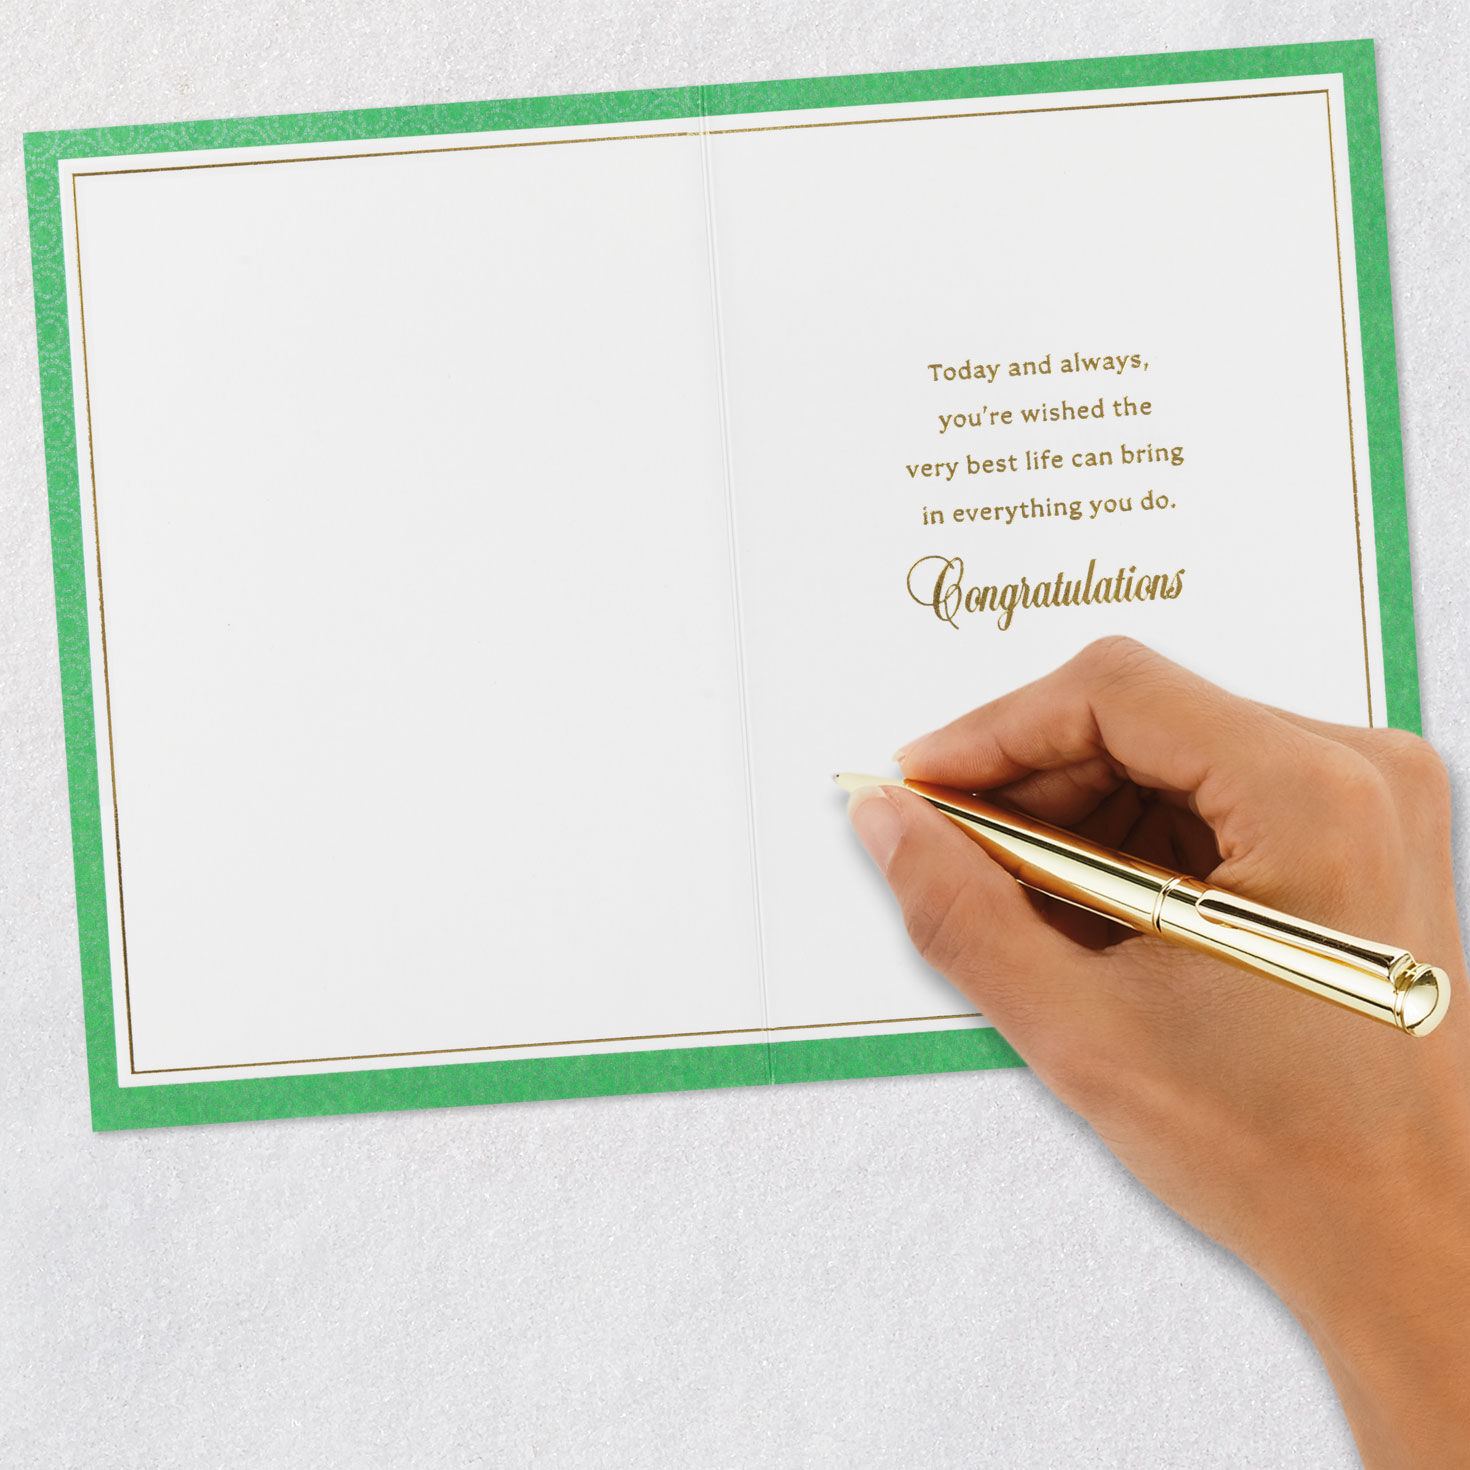 Today and always,
you're wished the
very best life can bring
in everything you do.
Congratulations